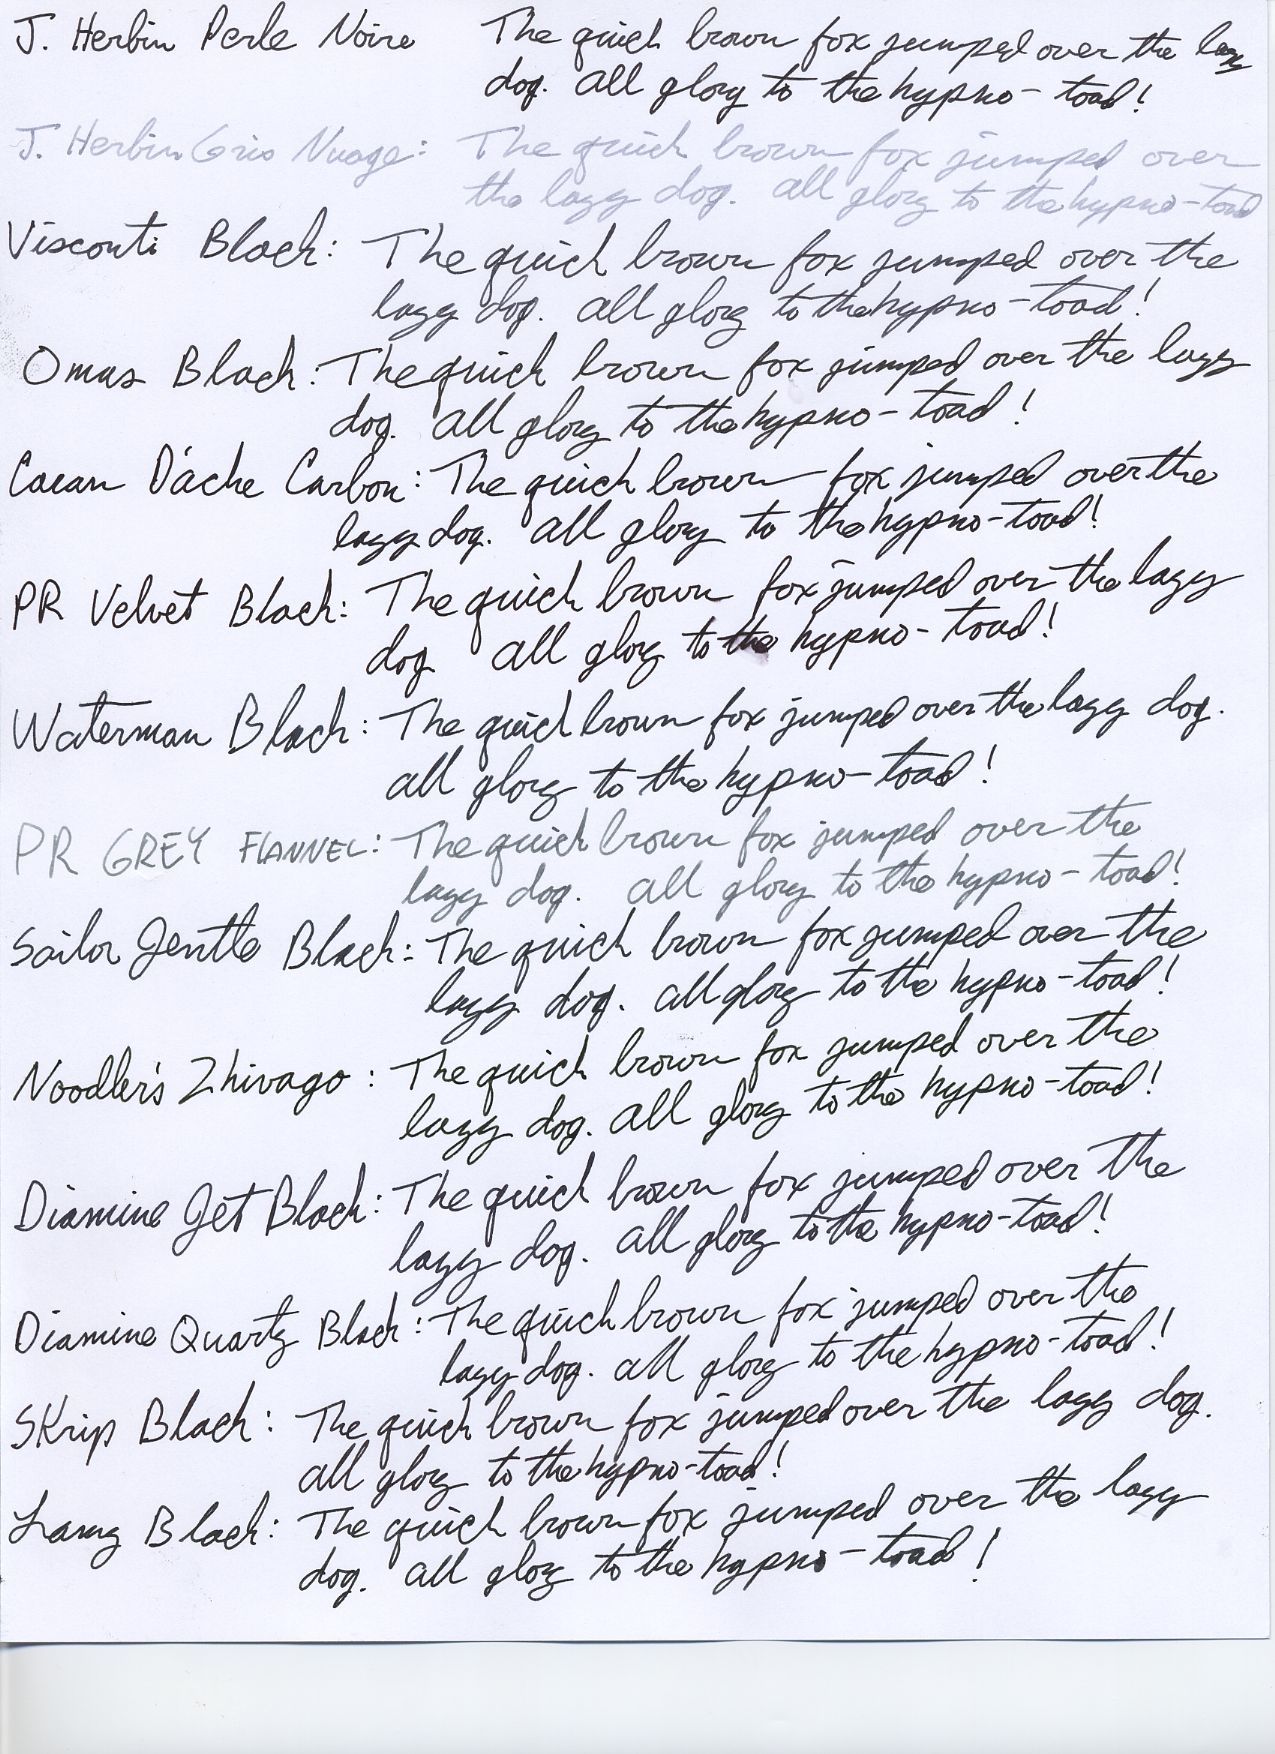 J. Herbin Perle Noire The quick brown fox jumped over the lazy
dog. All glory to the hypno-toad!
J. Herbin Gris Nuage: The quick brown fox jumped over
the lazy dog. All glory to the hypno-toad
Visconti Black: The quick brown fox jumped over the
lazy dog. All glory to the hypno-toad!
Omas Black: The quick brown fox jumped over the lazy
dog. All glory to the hypno-toad!
Caran D'ache Carbon: The quick brown fox jumped over the
lazy dog. All glory to the hypno-toad!
PR Velvet Black: The quick brown fox jumped over the lazy
dog All glory to the hypno-toad!
Waterman Black: The quick brown fox jumped over the lazy dog.
All glory to the hypno-toad!
PR GREY FLANNEL: The quick brown fox jumped over the
lazy dog. All glory to the hypno-toad!
Sailor Jentle Black: The quick brown fox jumped over the
lazy dog. All glory to the hypno-toad!
Noodler's Zhivago: The quick brown fox jumped over the
lazy dog. All glory to the hypno-toad!
Diamine Jet Black: The quick brown fox jumped over the
lazy dog. All glory to the hypno-toad!
Diamine Quartz Black: The quick brown fox jumped over the
lazy dog. All glory to the hypno-toad!
Skrip Black: The quick brown fox jumped over the lazy dog.
All glory to the hypno-toad!
Lamy Black: The quick brown fox jumped over the lazy
dog. All glory to the hypno-toad!